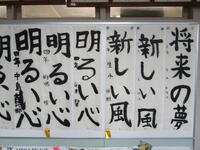 将来の夢
新しい風
新しい風
明るい心
明るい心
明るい心
明るい心